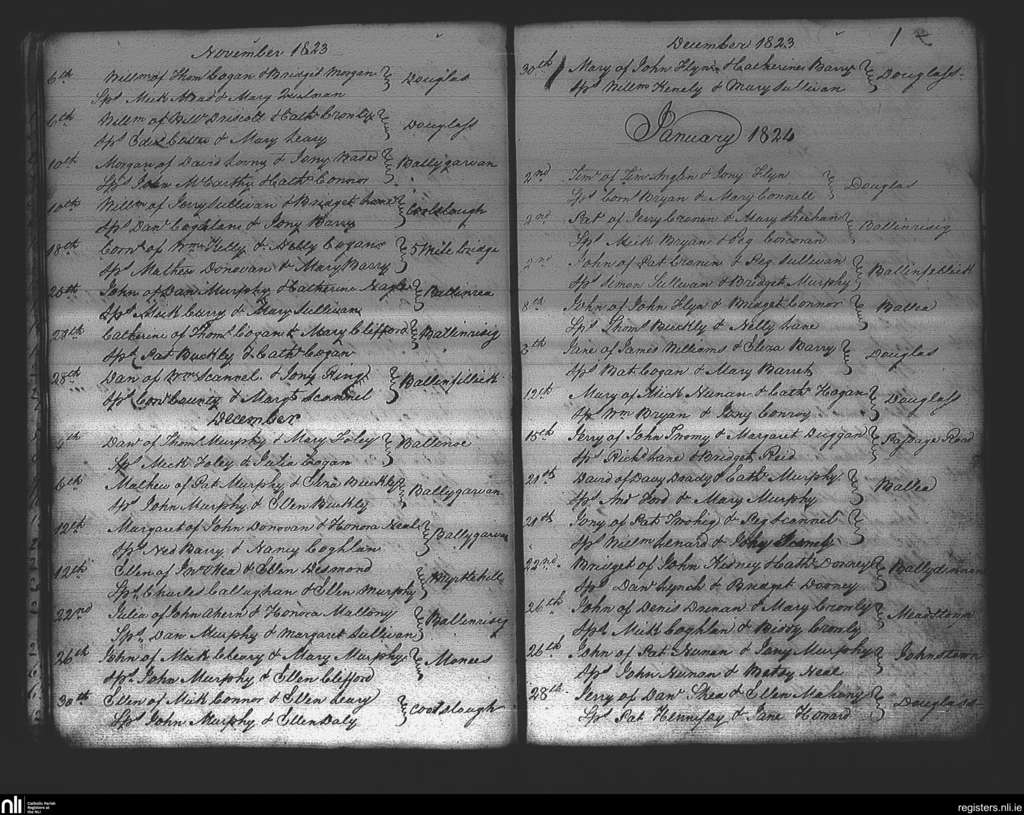 November 1823
6th Willm of Thoms Cogan & Bridget Morgan Douglas
Sps Mick & Mary
6th Willm of Driscoll & Cath Cronly Douglass
Sps & Mary Leary
10th Morgan of David & Jony Wade Ballygarvan
Sps John McCarthy & Cath Connor
10th Willm of Jerry Sullivan & Bridget Coolslough
Sps Danl Coghlane & Jony Barry
18th Corns of Wm Kelly & Debby Cogans 5 Mile Bridge
Sps Mathew Donovan & Mary Barry
John of Danl Murphy & Catherine Ballinrea
Sps Mick Curry & Mary Sullivan
28th Catherine of Thoms Cogan & Mary Clifford Ballinrisig
Sps Pat Buckley & Cath Cogan
28th Dan of Wm Scannel & Jony Ring Ballinfillick
Sps Corns & Margt Scannel
December
Dan of Thoms Murphy & Mary Foley Ballinoe
Sps Mick Foley & Julia Cogan
6th Mathew of Pat Murphy & Buckley Ballygarvan
Sps John Murphy & Ellen Buckley
12th Margaret of John Donovan & Honora Neal Ballygarvan
Sps Ned Barry & Nancy Coghlan
12th Ellen of & Ellen Desmond Myrtlehill
Sps Charles Callaghan & Ellen Murphy
22nd Julia of John Ahern & Honora Mallony Ballinrisig
Sps Dan Murphy & Margaret Sullivan
26th John of Mick & Mary Murphy Monees
Sps John Murphy & Ellen Clifford
30th Ellen of Mick Connor & Ellen Leary Coolslough
Sps John Murphy & Ellen Daly
December 1823
1
30th Mary of John Flyn & Catherine Barry Douglass
Sps Willm Henely & Mary Sullivan
January 1824
2nd Timy of Tim Anglin & Jony Flyn Douglas
Sps Corns Bryan & Mary Connell
2nd Pat of Jerry Cronen & Mary Sheehan Ballinrisig
Sps Mick Bryan & Peg Corcoran
2nd John of Pat Cronin & Peg Sullivan Ballinfellick
Sps Simon Sullivan & Bridget Murphy
8th John of John Flyn & Bridget Connor Ballea
Sps Thoms Buckly & Nelly Lane
Jane of James Williams & Eliza Barry Douglas
Sps Bat Cogan & Mary Barret
12th Mary of Mick Nunan & Cath Hogan Douglass
Sps Wm Bryan & Jony Conroy
15th Jerry of John Twomy & Margaret Duggan Passage Road
Sps Richd Lane & Bridget Reid
21st David of Davy Brady & Cath Murphy Ballea
Sps And Ford & Mary Murphy
21st Jony of Pat Twohig & Peg Scannel
Sps Willm Lenard & Jony
22nd Bridget of John Hidney & Cath Dooney
Sps Danl Lynch & Bridget Dooney
26th John of Denis Drenan & Mary Cronly Meadstown
Sps Mick Coghlan & Biddy Cronly
26th John of Pat Nunan & Jony Murphy Johnstown
Sps John Nunan & Betsy Neal
28th Jerry of Danl Shea & Ellen Mahony Douglass
Sps Pat Hennesey & Jane Honard
nli
Catholic Parish
Registers at
the NLI
registers.nli.ie